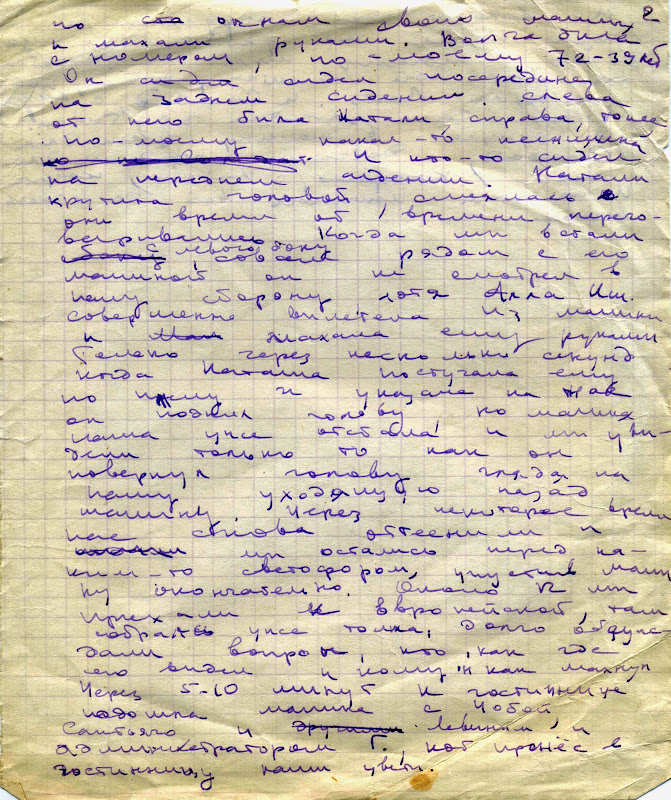 2
по окнам своей машины
и махали руками. Волга была
с номером, по-моему 72-39
Он сидел посередине
на заднем сидении, слева
от него была Натали справа, тоже
по-моему какая-то женщина
И кто-то сидел
на переднем сидении. Натали
крутила головой, смеялась
они время от времени перего-
варивались. Когда мы встали
с левого боку, совсем рядом с его
машиной он не смотрел в
нашу сторону хотя Алла Иш.
совершенно вылетела из машины
и махала ему руками
Только через несколько секунд
когда Наташа постучала ему
по и указала на нас
он поднял голову но машина
наша уже отстала и мы уви-
дели только то как он
повернул голову глядя на
нашу уходящую назад
машину. Через некоторое время
нас снова оттеснили и
мы остались перед ка-
ким-то светофором, упустив маши
ну окончательно. Около 12 мы
приехали к Европейской, там
собралась уже толпа, долго обсуж-
дали вопрос, кто, как где
его видел и кому и как махнул
Через 5-10 минут к гостиннице
подошла машина с Чобой
Сантьяго и Левиным и
администратором Г., кот пронёс в
гостинницу наши цветы.